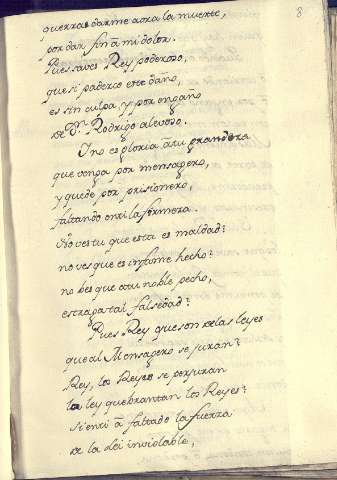 8
querras darme aora la muerte,
por dar fin â mi dolor.
Pues saves Rey poderoso,
que si padezco este daño,
es sin culpa y por engaño
de D. Rodrigo alevoso.
I no es gloria a tu grandeza
que venga por mensagero,
y quede por prisionero,
faltando en ti la firmeza.
No ves tu que esta es maldad?
no ves que es infame hecho?
no ves que a tu noble pecho,
estraga tal falsedad?
Pues Rey que son de las leyes
que al Mensagero se juran?
Rey, los Reyes se perjuran
la ley quebrantan los Reyes?
Si en ti â faltado la fuerza
de la lei inviolable,